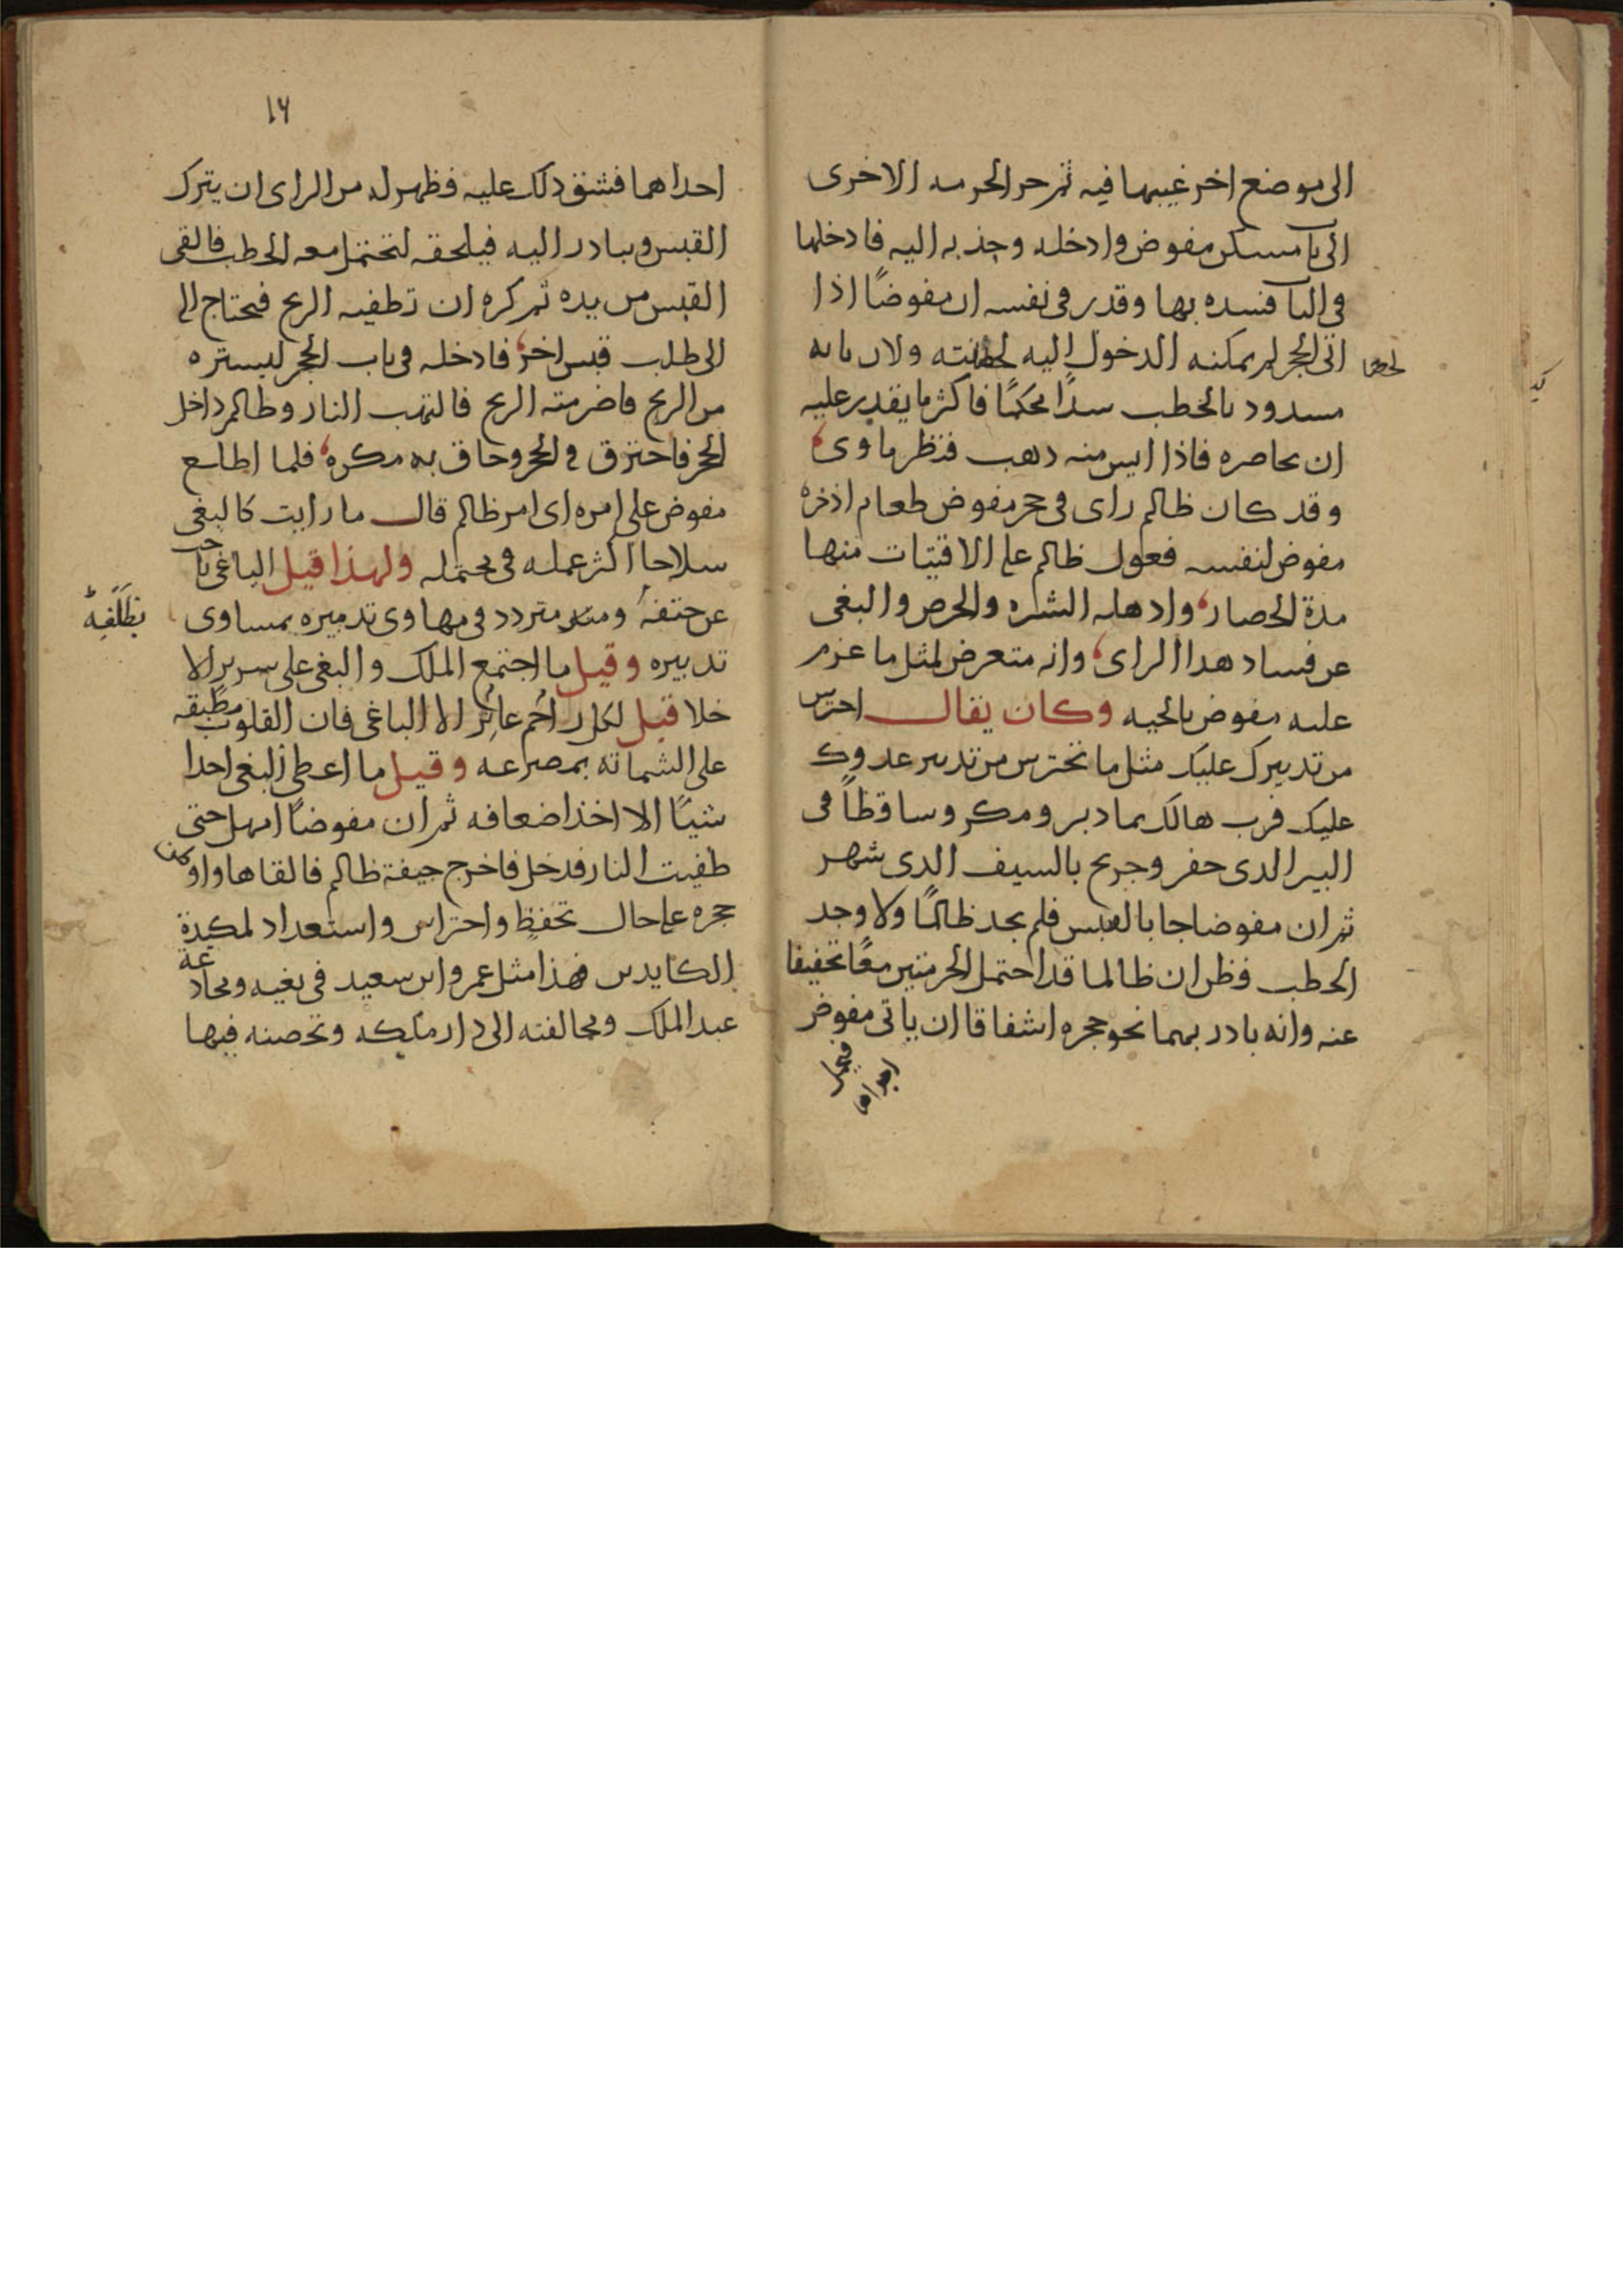 الى موضع اخر غيبها فيه ثم جر الحزمه الاخرى
الى باب مسكن مفوض وادخله وجذبه اليه فادخلها
فى الباب فسده بها وقدر فى نفسه ان مفوضًا اذا
اتى الجحر لم يمكنه الدخول اليه لحصانته ولان بابه
مسدود بالحطب سدًا محكمًا فاكثر ما يقدر عليه
ان يحاصره فاذا ايس منه ذهب فنظر ماوى
وقد كان ظالم راى فى جحر مفوض طعام اذخره
مفوض لنفسه فعول ظالم على الاقتيات منها
مدة الحصار واذهله الشره والحرص والبغى
عن فساد هدا الراى وانه متعرض لمثل ما عزم
عليه مفوض بالحيه وكان يقال احترس
من تدبيرك عليك مثل ما تحترس من تدبير عدوك
عليك فرب هالك بما دبر ومكر وساقطاً فى
البير الدى حفر وجريح بالسيف الدى شهر
ثم ان مفوضا جا بالقبس فلم يجد ظالمًا ولا وجد
الحطب فظن ان ظالما قد احتمل الحزمتين معًا تخفيفا
عنه وانه بادر بهما نحو جحره اشفاقا ان ياتى مفوض
١٦
احداهما فشق ذلك عليه فظهر له من الراى ان يترك
القبس ويبادر اليه فيلحقه لتحتمل معه الحطب فالقى
القبس من يده ثم كره ان تطفيه الريح فيحتاج الى
الى طلب قبس اخر فادخله فى باب الجحر ليستره
من الريح فاضرمته الريح فالتهب النار وظالم داخل
الجحر فاحترق فى الجحر وحاق به مكره فلما اطلع
مفوض على امره اى امر ظالم قال ما رايت كالبغى
سلاحا اكثر عمله فى محتمله ولهذا قيل الباغى باحث
عن حتفه بظلفه ومتردد فى مهاوى تدميره بمساوى
تدبيره وقيل ما اجتمع الملك والبغى على سرير الا
خلا قيل لكل راحم عاثر الا الباغى فان القلوب مطبقه
على الشماته بمصرعه وقيل ما اعطى البغى احدا
شيئًا الا اخذ اضعافه ثم ان مفوضًا امهل حتى
طفيت النار فدخل فاخرج جيفة ظالم فالقاها واوطن
جحره على حال تحفظ واحتراس واستعداد لمكيدة
الكايدين فهذا مثل عمرو ابن سعيد فى بغيه ومخادعة
عبد الملك ومخالفته الى دار ملكه وتحصنه فيها